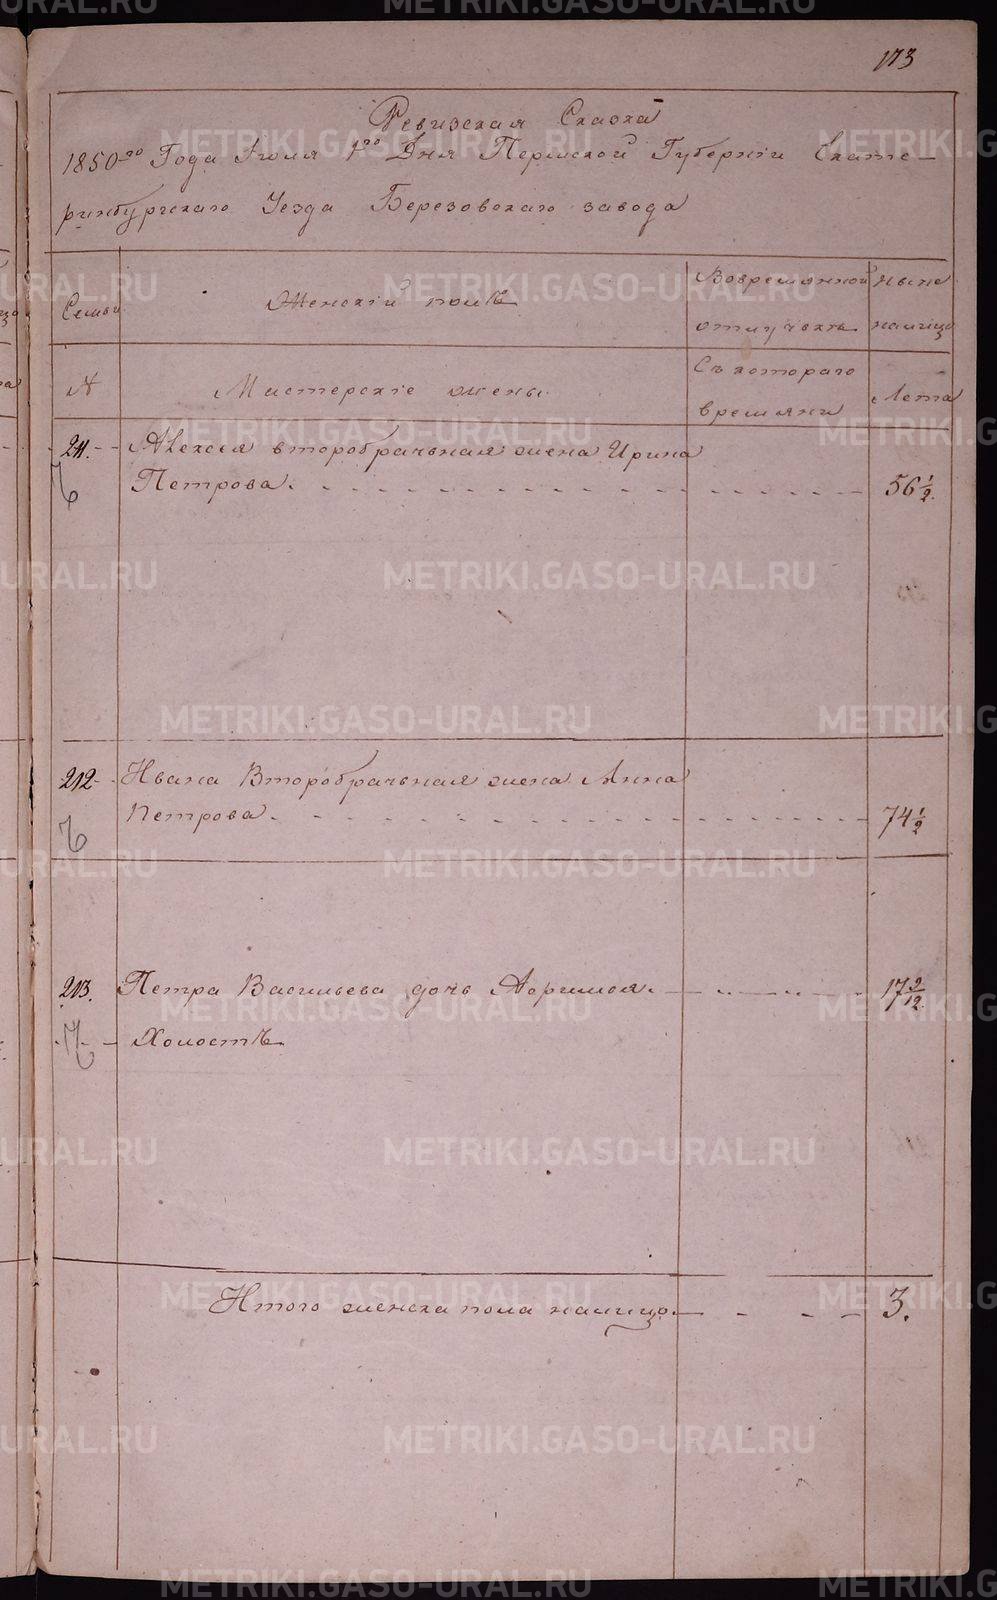 173
Ревизская Сказка
1850го Года Июля 1го Дня Пермской Губернiи Екате-
ринбургскаго Уезда Березовскаго завода
Семьи
Женскiй полъ
Вовремянной
отлучкахъ
ныне
налицо
№
Мастерскiе жены.
Съ котораго
времяни
Лета
211.
Алексея второбрачьная жена Ирина
Петрова.
56 1/2.
212
Ивана Второбрачьная жена Анна
Петрова.
74 1/2
213.
Петра Васильева дочь
17 9/12.
Холостъ
Итого женска пола налицо.
3.
METRIKI.GASO-URAL.RU